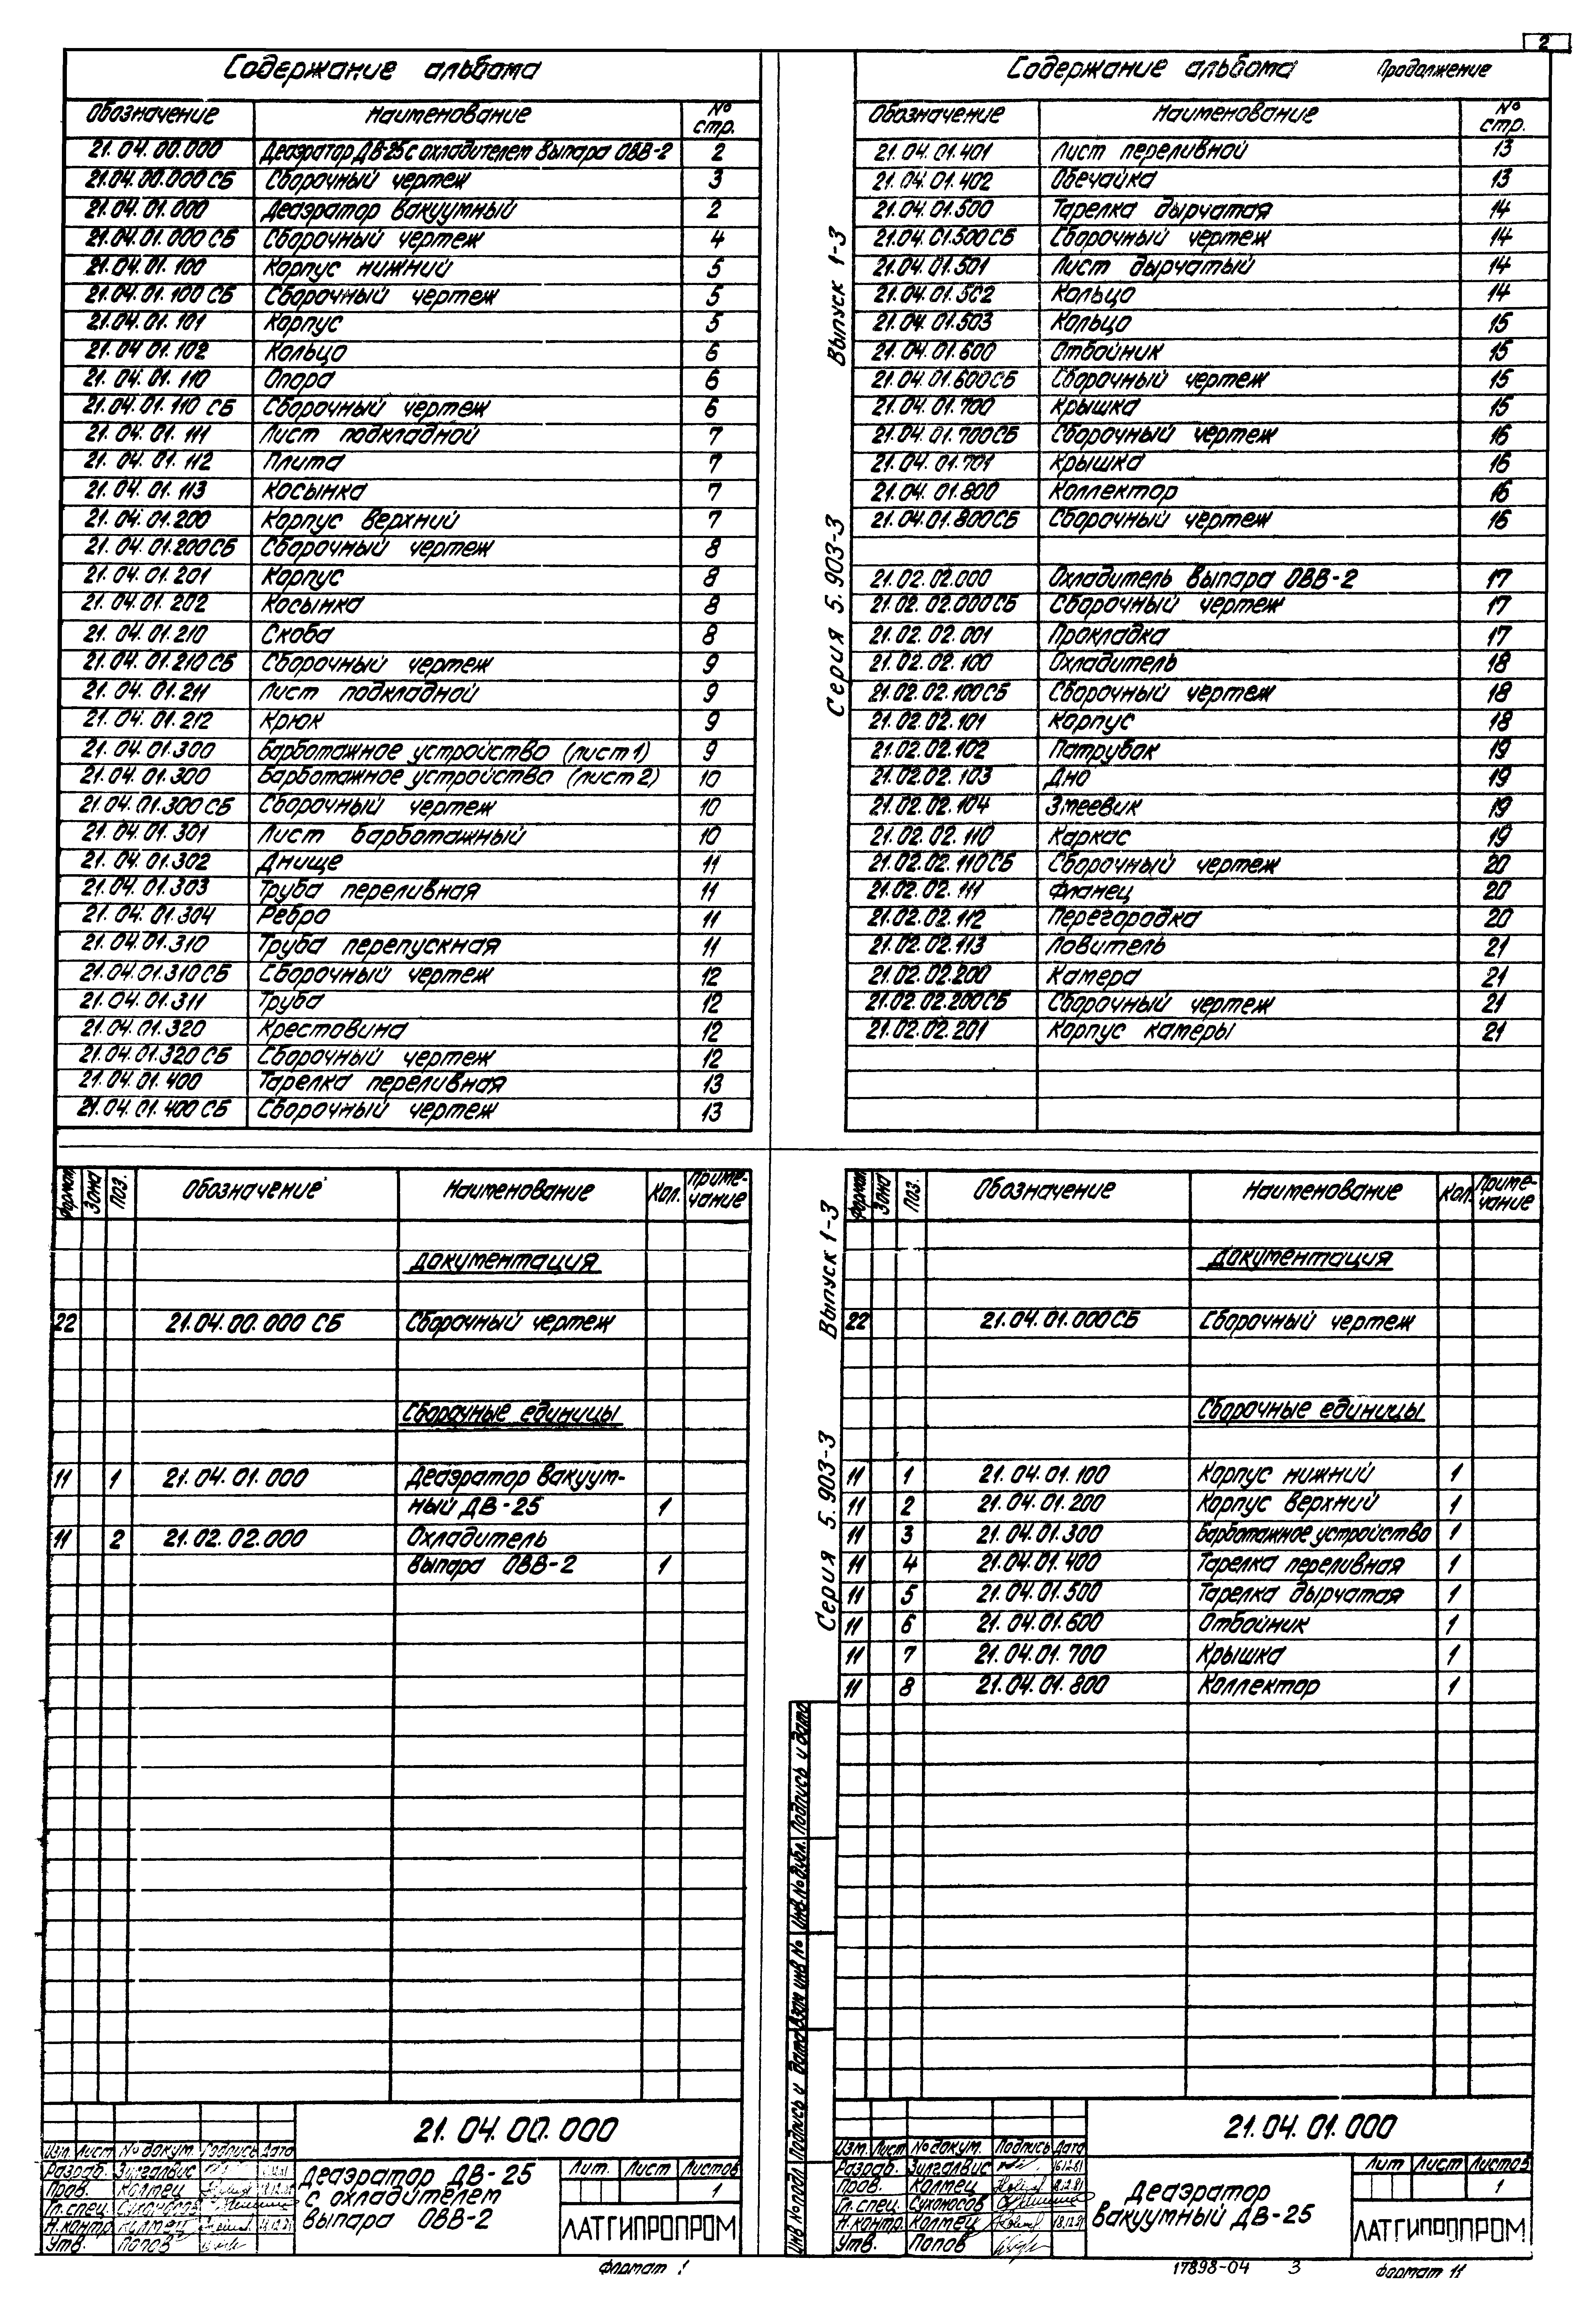 2
Содержание альбома
Обозначение Наименование № стр.
21.04.00.000 Деаэратор ДВ-25 с охладителем выпара ОВВ-2 2
21.04.00.000 СБ Сборочный чертеж 3
21.04.01.000 Деаэратор вакуумный 2
21.04.01.000 СБ Сборочный чертеж 4
21.04.01.100 Корпус нижний 5
21.04.01.100 СБ Сборочный чертеж 5
21.04.01.101 Корпус 5
21.04.01.102 Кольцо 6
21.04.01.110 Опора 6
21.04.01.110 СБ Сборочный чертеж 6
21.04.01.111 Лист подкладной 7
21.04.01.112 Плита 7
21.04.01.113 Косынка 7
21.04.01.200 Корпус верхний 7
21.04.01.200 СБ Сборочный чертеж 8
21.04.01.201 Корпус 8
21.04.01.202 Косынка 8
21.04.01.210 Скоба 8
21.04.01.210 СБ Сборочный чертеж 9
21.04.01.211 Лист подкладной 9
21.04.01.212 Крюк 9
21.04.01.300 Барботажное устройство (лист 1) 9
21.04.01.300 Барботажное устройство (лист 2) 10
21.04.01.300 СБ Сборочный чертеж 10
21.04.01.301 Лист барботажный 10
21.04.01.302 Днище 11
21.04.01.303 Труба переливная 11
21.04.01.304 Ребро 11
21.04.01.310 Труба перепускная 11
21.04.01.310 СБ Сборочный чертеж 12
21.04.01.311 Труба 12
21.04.01.320 Крестовина 12
21.04.01.320 СБ Сборочный чертеж 12
21.04.01.400 Тарелка переливная 13
21.04.01.400 СБ Сборочный чертеж 13
Содержание альбома Продолжение
Обозначение Наименование № стр.
21.04.01.401 Лист переливной 13
21.04.01.402 Обечайка 13
21.04.01.500 Тарелка дырчатая 14
21.04.01.500 СБ Сборочный чертеж 14
21.04.01.501 Лист дырчатый 14
21.04.01.502 Кольцо 14
21.04.01.503 Кольцо 15
21.04.01.600 Отбойник 15
21.04.01.600 СБ Сборочный чертеж 15
21.04.01.700 Крышка 15
21.04.01.700 СБ Сборочный чертеж 16
21.04.01.701 Крышка 16
21.04.01.800 Коллектор 16
21.04.01.800 СБ Сборочный чертеж 16
21.02.02.000 Охладитель выпара ОВВ-2 17
21.02.02.000 СБ Сборочный чертеж 17
21.02.02.001 Прокладка 17
21.02.02.100 Охладитель 18
21.02.02.100 СБ Сборочный чертеж 18
21.02.02.101 Корпус 18
21.02.02.102 Патрубок 19
21.02.02.103 Дно 19
21.02.02.104 Змеевик 19
21.02.02.110 Каркас 19
21.02.02.110 СБ Сборочный чертеж 20
21.02.02.111 Фланец 20
21.02.02.112 Перегородка 20
21.02.02.113 Ловитель 21
21.02.02.200 Камера 21
21.02.02.200 СБ Сборочный чертеж 21
21.02.02.201 Корпус камеры 21
Серия 5.903-3 Выпуск 1-3
Формат Зона Поз. Обозначение Наименование Кол. Примечание
Документация
22 21.04.00.000 СБ Сборочный чертеж
Сборочные единицы
11 1 21.04.01.000 Деаэратор вакуум-
ный ДВ-25 1
11 2 21.02.02.000 Охладитель
выпара ОВВ-2 1
21.04.00.000
Изм. Лист № докум. Подпись Дата
Разраб. Зилгалвис
Пров. Колтец
Гл. спец. Сухоносов
Н. контр. Колтец
Утв. Попов
Деаэратор ДВ-25
с охладителем
выпара ОВВ-2
Лит. Лист Листов
1
ЛАТГИПРОПРОМ
Формат 1
Серия 5.903-3 Выпуск 1-3
Формат Зона Поз. Обозначение Наименование Кол. Примечание
Документация
22 21.04.01.000 СБ Сборочный чертеж
Сборочные единицы
11 1 21.04.01.100 Корпус нижний 1
11 2 21.04.01.200 Корпус верхний 1
11 3 21.04.01.300 Барботажное устройство 1
11 4 21.04.01.400 Тарелка переливная 1
11 5 21.04.01.500 Тарелка дырчатая 1
11 6 21.04.01.600 Отбойник 1
11 7 21.04.01.700 Крышка 1
11 8 21.04.01.800 Коллектор 1
Инв № подл Подпись и дата Взам инв № Инв. № дубл. Подпись и дата
21.04.01.000
Изм. Лист № докум. Подпись Дата
Разраб. Зилгалвис 16.12.81
Пров. Колтец 18.12.81
Гл. спец. Сухоносов
Н. контр. Колтец 18.12.81
Утв. Попов
Деаэратор
вакуумный ДВ-25
Лит Лист Листов
1
ЛАТГИПРОПРОМ
17898-04 3
Формат 11